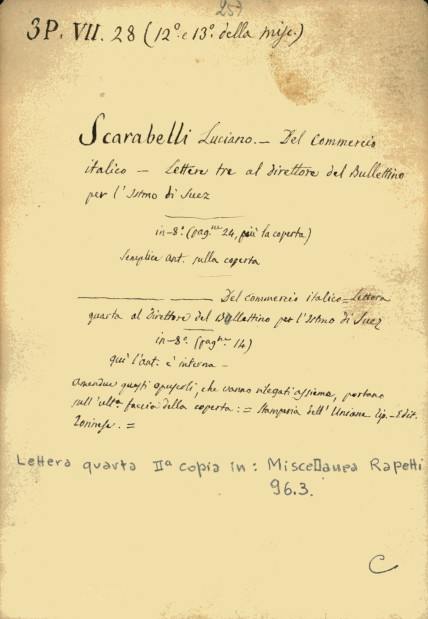 257
3P. VII. 28 (12º. e 13º. della misc.)
Scarabelli Luciano. — Del commercio
italico — Lettere tre al direttore del Bullettino
per l'Istmo di Suez
in-8º. (pagne 24, più la coperta)
Semplice ant. sulla coperta
Del commercio italico — Lettera
quarta al Direttore del Bullettino per l'Istmo di Suez
in-8º. (pagne 14)
qui l'ant. è interna —
Amendue questi opuscoli, che vanno rilegati assieme, portano
sull'ulta. faccia della coperta: = Stamperia dell'Unione Tip.-Edit.
Torinese. =
Lettera quarta IIª copia in: Miscellanea Rapetti
96.3.
C